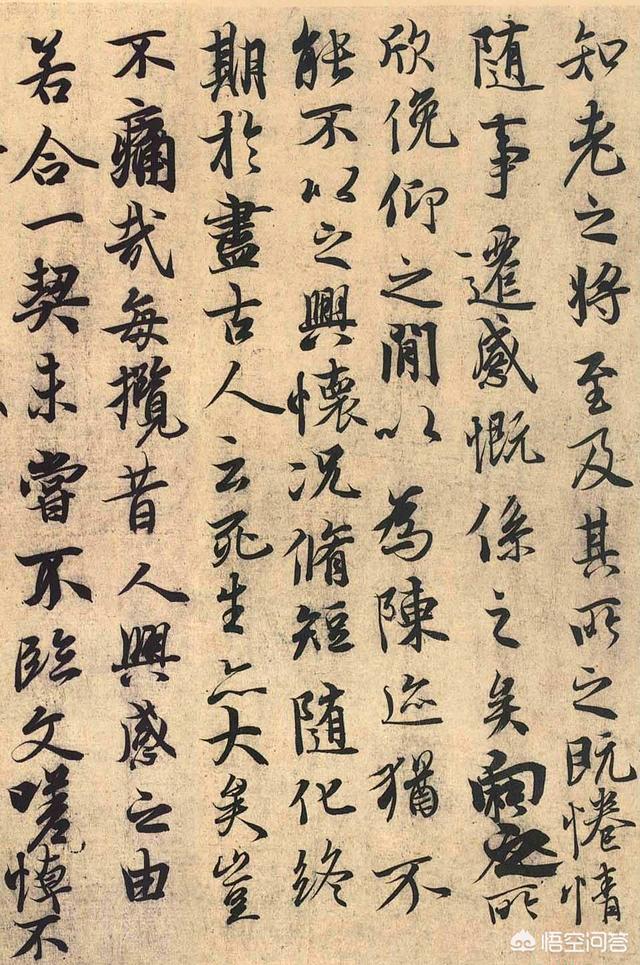 知老之將至及其所之既惓情
随事遷感慨係之矣向之所
欣俛仰之閒以為陳迹猶不
能不以之興懷况脩短随化終
期於盡古人云死生亦大矣豈
不痛哉每攬昔人興感之由
若合一契未嘗不臨文嗟悼不
悟空问答